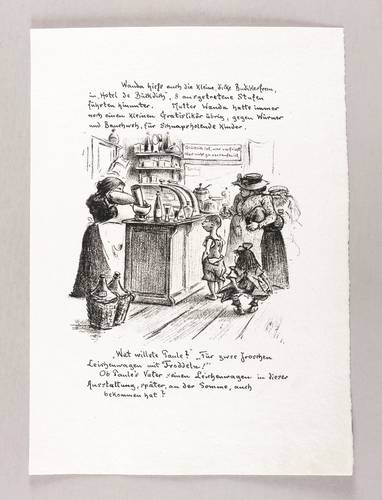 Wanda hieß auch die kleine, dicke Budikerfrau,
in „Hotel de Bückdich", 8 ausgetretene Stufen
führten hinunter. Mutter Wanda hatte immer
noch einen kleinen Gratislikör übrig, gegen Würmer
und Bauchweh, für Schnapsholende Kinder.
Glücklich ist, wer verfrisst
Was nicht zu versaufen ist.
„Wat willste Paule?" „Für zwee Froschen
Leichenwagen mit Troddeln!"
Ob Paule's Vater seinen Leichenwagen in dieser
Ausstattung, später, an der Somme, auch
bekommen hat?